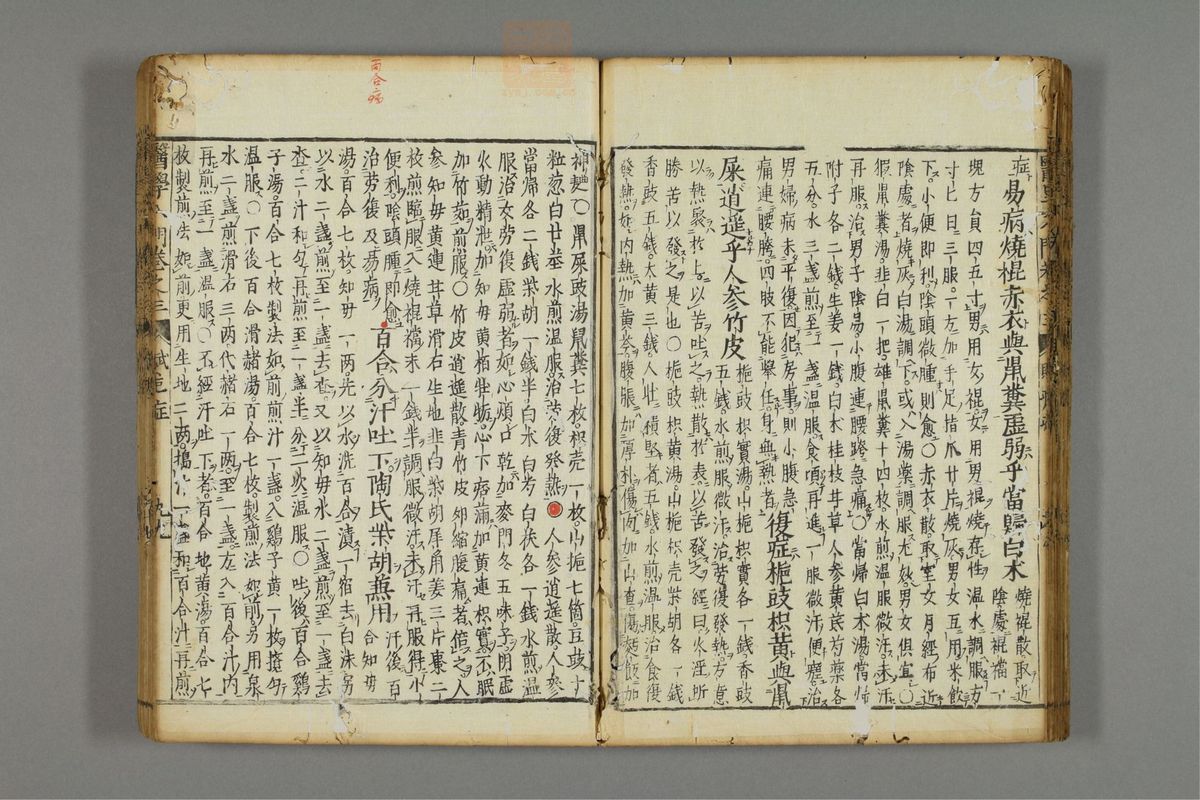 症易病燒裩赤衣與鼠糞虛弱乎當歸白朮燒裩散取近陰處裩襠一
塊方員四五寸男用女裩女用男裩燒存性温水調服方
寸匕日三服一方加手足指爪廿片燒灰男女互用米飲
下小便即利陰頭微腫則愈○赤衣散取室女月經布近
陰處者燒灰白湯調下或入湯藥調服尤效男女俱宜○
猳鼠糞湯韭白一把雄鼠糞十四枚水煎温服微汗未汗
再服治男子陰易小腹連腰踡急痛○當帰白朮湯當帰
附子各二錢生姜一錢白朮桂枝甘草人參黄芪芍藥各
五分水三盞煎至一盞温服食頃再進一服微汗便瘥治
男婦病未平復因犯房事則小腹急
痛連腰胯四肢不能舉任身無熱者復症梔豉枳黄與鼠
屎逍遥乎人參竹皮梔豉枳實湯山梔枳實各一錢香豉五錢水煎服微汗治勞復發熱方意
以熱聚於上以苦吐之熱散於表以苦發之經曰火淫所
勝苦以發之是也○梔豉枳黄湯山梔枳壳柴胡各一錢
香豉五錢大黄三錢人壯積堅者五錢水煎温服治食復
發熱如内熱加黄芩腹脹加厚朴傷肉加山查傷麪飯加
神麯○鼠屎豉湯鼠糞七枚枳壳一枚山梔七箇豆豉十
粒葱白廿莖水煎温服治勞後發熱人參逍遥散人參
當帰各二錢柴胡一錢半白朮白芍白茯各一錢水煎温
服治女勞復虛弱者如心煩口乾加麥門冬五味子陰虛
火動精泄加知毋黄栢牡蛎心下痞滿加黄連枳實不眠
加竹茹煎服○竹皮逍遥散青竹皮卵縮腹痛者倍之人
參知毋黄連甘草滑石生地韭白柴胡犀角姜三片棗二
枚煎臨服入燒裩襠末一錢半調服微汗未汗再服得小
便利陰頭腫即愈
治勞復及易病百合分汗吐下陶氏柴胡蕪用汗後百合知毋
湯百合七枚知毋一两先以水洗百合漬一宿去白沫另
以水二盞煎至一盞去查又以知毋水二盞煎至一盞去
查二汁和匀再煎至一盞半分二次温服○吐後百合鷄
子湯百合七枚製法如前煎汁一盞入鷄子黄一枚攪匀
温服○下後百合滑赭湯百合七枚製煎法如前另用泉
水二盞煎滑石三两代赭石一两至一盞左入百合汁内
再煎至一盞温服○不經汗吐下者百合地黄湯百合七
枚製煎法如前更用生地二两搗汁一盞和百合汁再煎
醫學入門卷之三
百合病